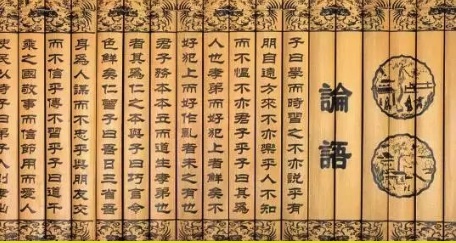 論語
子曰學而時習之不亦說乎有
朋自遠方來不亦樂乎人不知
而不慍不亦君子乎子曰其爲
人也孝弟而好犯上者鮮矣不
好犯上而好作亂者未之有也
君子務本本立而道生孝弟也
者其爲仁之本與子曰巧言令
色鮮矣仁曾子曰吾日三省吾
身爲人謀而不忠乎與朋友交
而不信乎傳不習乎子曰道千
乘之國敬事而信節用而愛人
使民以時子曰弟子入則孝出